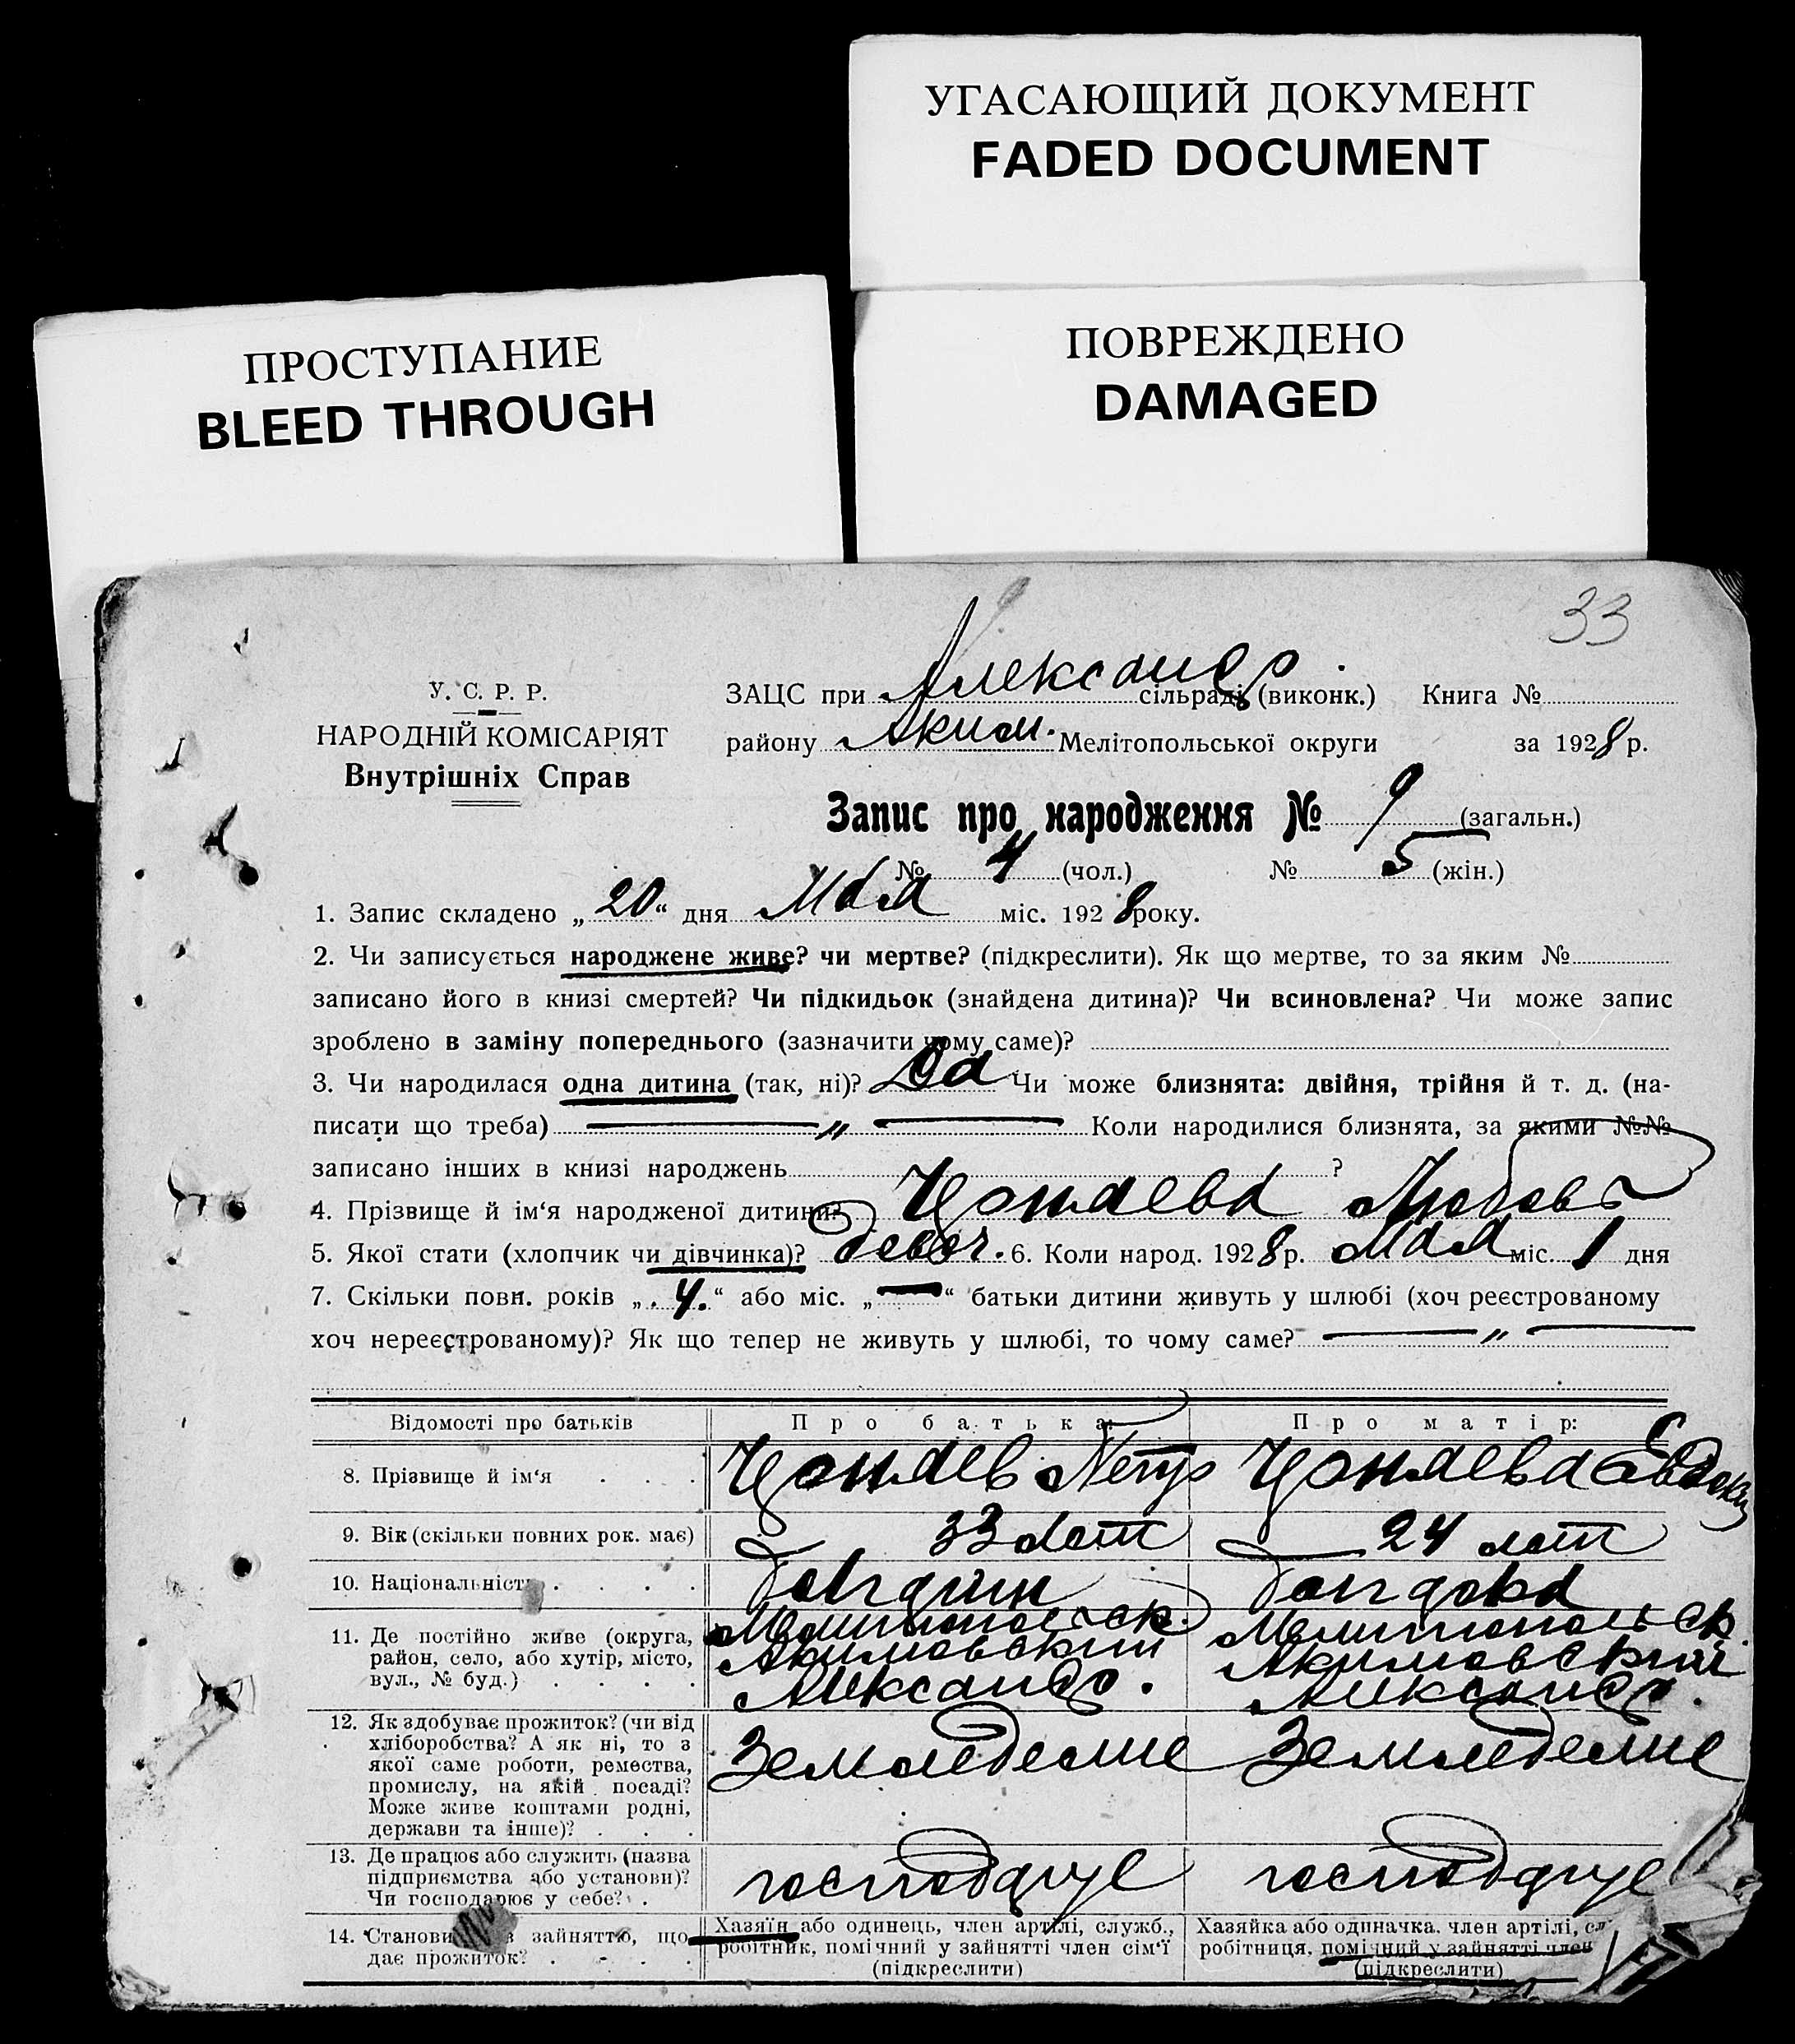 УГАСАЮЩИЙ ДОКУМЕНТ
FADED DOCUMENT
ПРОСТУПАНИЕ
BLEED THROUGH
ПОВРЕЖДЕНО
DAMAGED
33
У. С. Р. Р.
НАРОДНІЙ КОМІСАРІЯТ
Внутрішніх Справ
ЗАЦС при Александр. сільраді (виконк.) Книга №
району Аким. Мелітопольської округи за 1928 р.
Запис про народження № 9 (загальн.)
№ 4 (чол.) № 5 (жін.)
1. Запис складено „20“ дня Мая міс. 1928 року.
2. Чи записується народжене живе? чи мертве? (підкреслити). Як що мертве, то за яким №
записано його в книзі смертей? Чи підкидьок (знайдена дитина)? Чи всиновлена? Чи може запис
зроблено в заміну попереднього (зазначити чому саме)?
3. Чи народилася одна дитина (так, ні)? Да Чи може близнята: двійня, трійня й т. д. (на-
писати що треба) — „ — Коли народилися близнята, за якими №№
записано інших в книзі народжень ?
4. Прізвище й ім‘я народженої дитини? Любовь
5. Якої стати (хлопчик чи дівчинка)? девоч. 6. Коли народ. 1928 р. Мая міс. 1 дня
7. Скільки повн. років „ 4. “ або міс. „ — “ батьки дитини живуть у шлюбі (хоч реєстрованому
хоч нереєстрованому)? Як що тепер не живуть у шлюбі, то чому саме? — „ —
Відомості про батьків Про батька: Про матір:
8. Прізвище й ім‘я . . . Петр
9. Вік (скільки повних рок. має) 33 лет 24 лет
10. Національність . . . . Болгарин Болгарка
11. Де постійно живе (округа, район, село, або хутір, місто, вул., № буд.) . . . .
Мелитопольск. Мелитопольск.
Акимовский Акимовский
Александр. Александр.
12. Як здобуває прожиток? (чи від
хліборобства? А як ні, то з
якої саме роботи, ремества,
промислу, на якій посаді?
Може живе коштами родні,
держави та інше)? . . .
Земледелие Земледелие
13. Де працює або служить (назва
підприємства або установи)?
Чи господарює у себе? .
господарує господарує
14. зайняттю, що
дає прожиток? . . . .
Хазяїн або одинець, член артілі, служб.,
робітник, помічний у зайнятті член сім‘ї
(підкреслити)
Хазяйка або одиначка. член артілі,
робітниця, помічний у зайнятті член
(підкреслити)